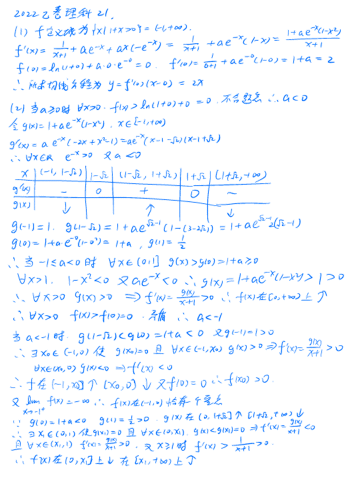 2022乙卷理科21.
(1) f定义域为{x|1+x>0}=(-1,+∞).
f'(x)=1/(x+1)+ae^{-x}+ax(-e^{-x})=1/(x+1)+ae^{-x}(1-x)=(1+ae^{-x}(1-x²))/(x+1)
f(0)=ln(1+0)+a·0·e^{-0}=0. f'(0)=1/(0+1)+ae^{-0}(1-0)=1+a=2
∴所求切线方程为 y=f'(0)(x-0)=2x
(2) 当a≥0时 ∀x>0. f(x)>ln(1+0)+0=0. 不合题意 ∴a<0
令g(x)=1+ae^{-x}(1-x²). x∈[-1,+∞)
g'(x)=ae^{-x}(-2x+x²-1)=ae^{-x}(x-1-√2)(x-1+√2)
∵∀x∈R e^{-x}>0 又a<0
x (-1,1-√2) 1-√2 (1-√2,1+√2) 1+√2 (1+√2,+∞)
g'(x) - 0 + 0 -
g(x) ↓ ↑ ↓
g(-1)=1. g(1-√2)=1+ae^{√2-1}(1-(3-2√2))=1+ae^{√2-1}2(√2-1)
g(0)=1+ae^{-0}(1-0²)=1+a, g(1)=
∴当-1≤a<0时 ∀x∈(0,1] g(x)>g(0)=1+a≥0
∀x>1. 1-x²<0 又ae^{-x}<0 ∴g(x)=1+ae^{-x}(1-x²)>1>0
∴∀x>0 g(x)>0 ⇒f'(x)=g(x)/(x+1)>0 ∴f(x)在[0,+∞)上↑
∴∀x>0 f(x)>f(0)=0. 矛盾 ∴a<-1
当a<-1时. g(1-√2)<g(0)=1+a<0 又g(-1)=1>0
∴∃x₀∈(-1,0)使 g(x₀)=0 且 ∀x∈(-1,x₀) g(x)>0⇒f'(x)=g(x)/(x+1)>0
∀x∈(x₀,0) g(x)<0 ⇒f'(x)<0
∴f在(-1,x₀]↑ [x₀,0]↓ 又f(0)=0 ∴f(x₀)>0.
又lim_{x→-1⁺} f(x)=-∞ ∴f(x)在(-1,0)恰存一零点
∵g(0)=1+a<0 g(1)= >0. g(x)在(0,1+√2]↑ [1+√2,+∞)↓
∴∃x₁∈(0,1)使g(x₁)=0 且∀x∈(0,x₁). g(x)<g(x₁)=0⇒f'(x)=g(x)/(x+1)<0
且∀x∈(x₁,1) f'(x)=g(x)/(x+1)>0. 又x≥1时f'(x)>1/(x+1)>0.
∴f(x)在(0,x₁]上↓在[x₁,+∞)上↑